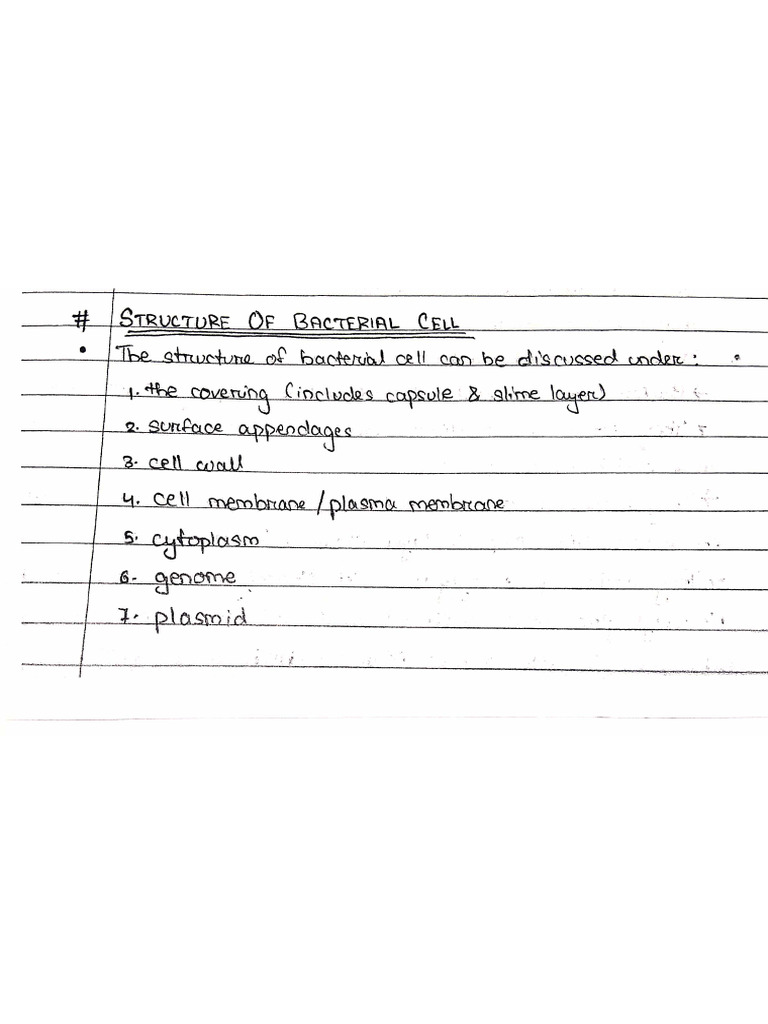 # STRUCTURE OF BACTERIAL CELL
• The structure of bacterial cell can be discussed under:
1. the covering (includes capsule & slime layer)
2. surface appendages
3. cell wall
4. cell membrane/plasma membrane
5. cytoplasm
6. genome
7. plasmid